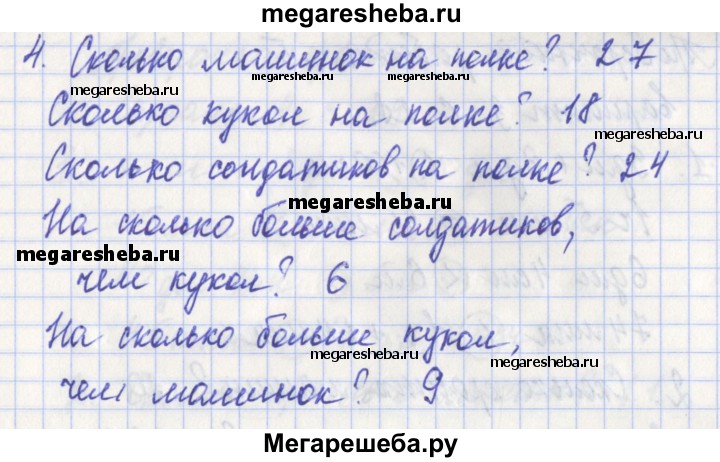 megaresheba.ru
4. Сколько машинок на полке? 27
megaresheba.ru megaresheba.ru
megaresheba.ru
Сколько кукол на полке? 18
megaresheba.ru
Сколько солдатиков на полке? 24
megaresheba.ru
На сколько больше солдатиков,
megaresheba.ru
чем кукол? 6
На сколько больше кукол,
megaresheba.ru
чем машинок? 9
megaresheba.ru
Мегарешеба.ру